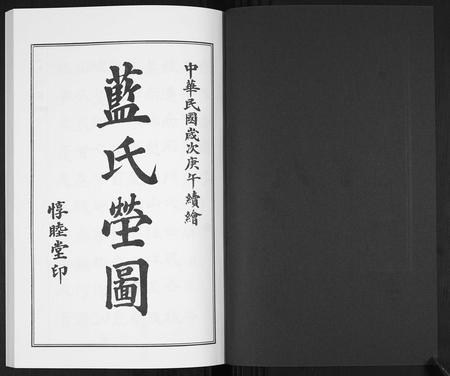 中華民國歲次庚午續繪
藍氏塋圖
惇睦堂印